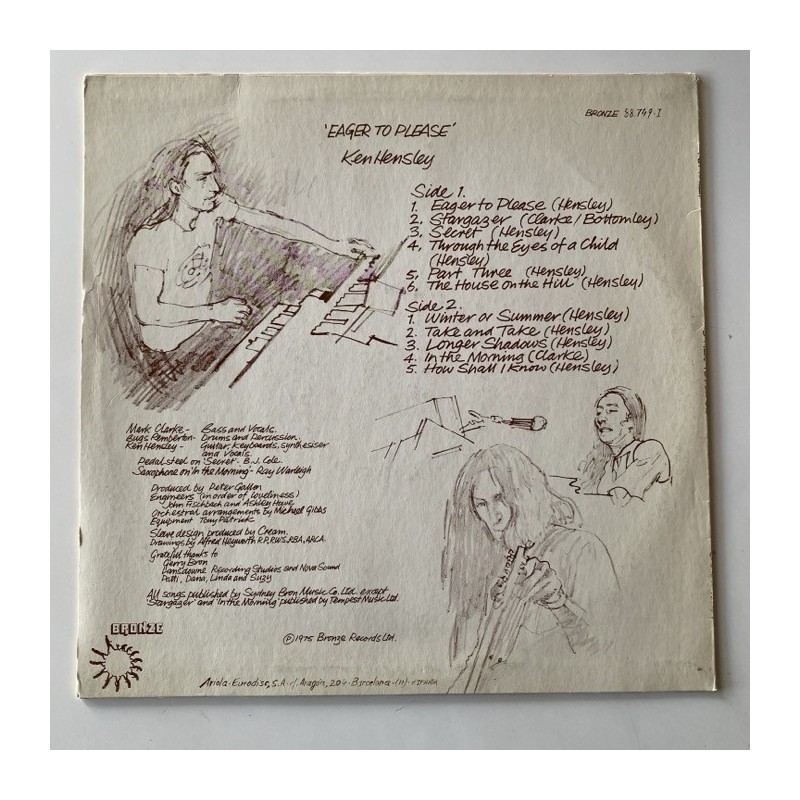 BRONZE 88.749-I
'EAGER TO PLEASE'
Ken Hensley
Side 1.
1. Eager to Please (Hensley)
2. Stargazer (Clarke/Bottomley)
3. Secret (Hensley)
4. Through the Eyes of a Child
(Hensley)
5. Part Three (Hensley)
6. The House on the Hill (Hensley)
Side 2.
1. Winter or Summer (Hensley)
2. Take and Take (Hensley)
3. Longer Shadows (Hensley)
4. In the Morning (Clarke)
5. How Shall I Know (Hensley)
Mark Clarke - Bass and Vocals.
Bugs Pemberton - Drums and Percussion.
Ken Hensley - Guitar, Keyboards, synthesiser
and Vocals.
Pedal steel on 'Secret' - B.J. Cole.
Saxophone on 'In the Morning' - Ray Warleigh
Produced by Peter Gallen
Engineers (in order of loveliness)
John Fischbach and Ashley Howe
Orchestral arrangements by Michael Gibbs
Equipment Tony Patrick
Sleeve design produced by Cream.
Drawings by Alfred Heyworth R.P., R.W.S., R.B.A., A.R.C.A.
Grateful thanks to
Gerry Bron
Lansdowne Recording Studios and Nova Sound
Patti, Dana, Linda and Suzy
All songs published by Sydney Bron Music Co. Ltd. except
'Stargazer' and 'In the Morning' published by Tempest Music Ltd.
BRONZE
℗ 1975 Bronze Records Ltd.
Ariola-Eurodisc, S.A. Aragón, 204 - Barcelona - (11) - ESPAÑA